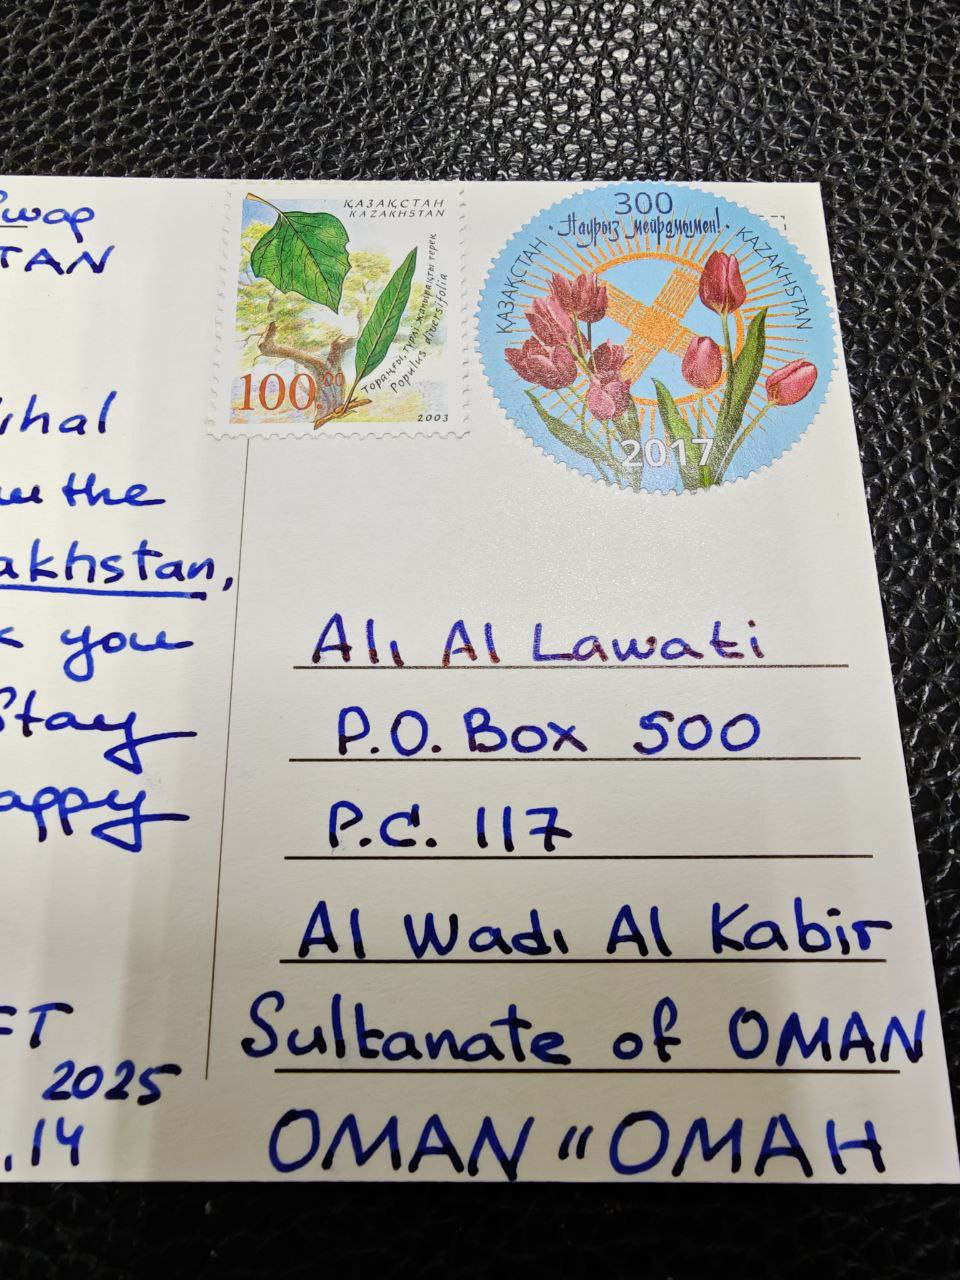 Swap
TAN
ҚАЗАҚСТАН
KAZAKHSTAN
Тораңғы, түрлі жапырақты терек
Populus diversifolia
100 00
2003
300
Наурыз мейрамымен!
ҚАЗАҚСТАН
KAZAKHSTAN
2017
the
akhstan,
you
Stay
appy
2025
.14
Ali Al Lawati
P.O. Box 500
P.C. 117
Al Wadi Al Kabir
Sultanate of OMAN
OMAN "ОМАН